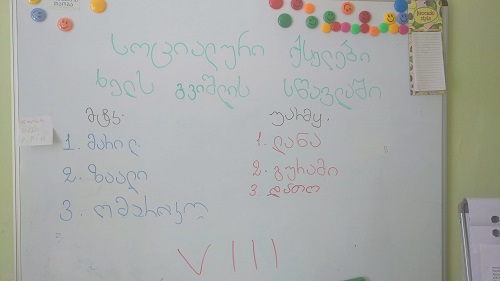 სოციალური ქსელები
ხელს გვიშლის სწავლაში
მტკ. უარყ.
1. მარი 1. ლანა
2. ზაალი 2. გურამი
3. ომარიკო 3. დათო
VIII